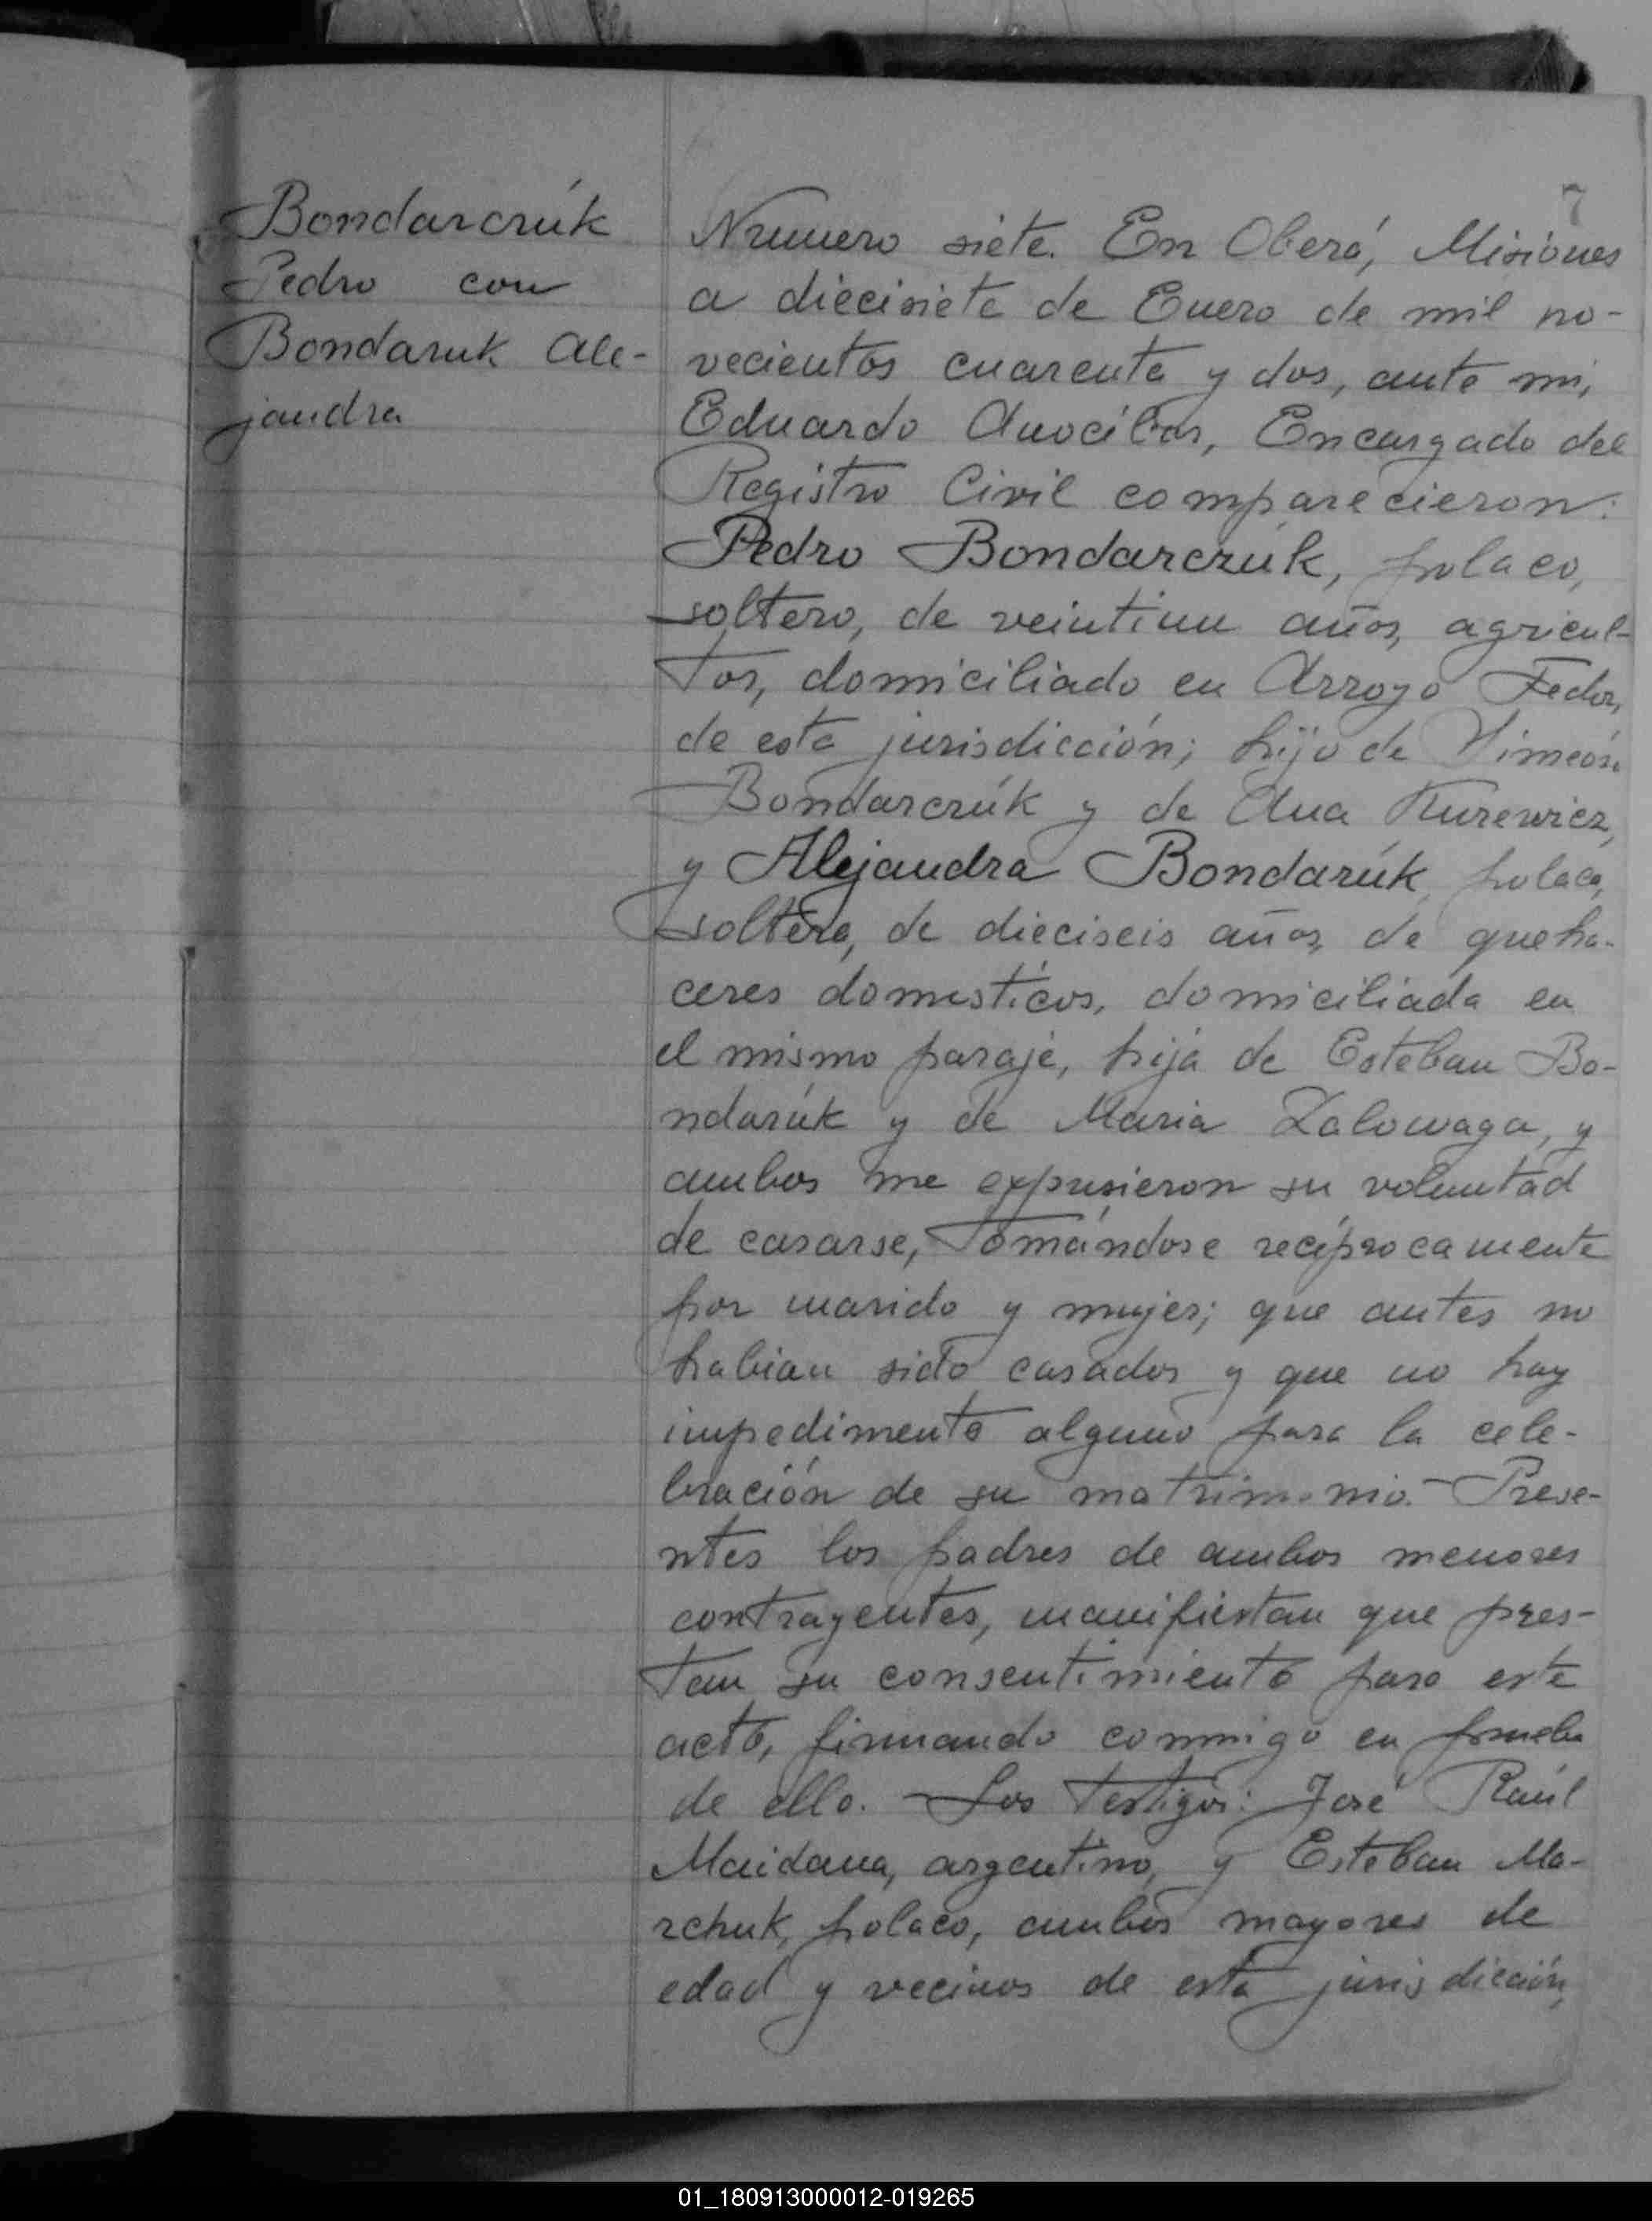 Bondarczúk
Pedro con
Bondaruk Ale-
jandra
7
Número siete. En Oberá, Misiones
a diecisiete de Enero de mil no-
vecientos cuarenta y dos, ante mi,
Eduardo Encargado del
Registro Civil comparecieron:
Pedro Bondarczúk, polaco,
soltero, de veintiun años, agricul-
tor, domiciliado en Arroyo Fedor,
de esta jurisdicción; hijo de Simeón
Bondarczúk y de Ana Kurewicz,
y Alejandra Bondarúk, polaca,
soltera, de dieciseis años, de queha-
ceres domesticos, domiciliada en
el mismo paraje, hija de Esteban Bo-
ndarúk y de Maria Zalowaga, y
ambos me expusieron su voluntad
de casarse, tomándose recíprocamente
por marido y mujer; que antes no
habian sido casados y que no hay
impedimento alguno para la cele-
bración de su matrimonio.- Prese-
ntes los padres de ambos menores
contrayentes, manifiestan que pres-
tan su consentimiento para este
acto, firmando conmigo en prueba
de ello.- Los testigos: José Raúl
Maidana, argentino, y Esteban Ma-
rchuk, polaco, ambos mayores de
edad y vecinos de esta jurisdicción,
01_180913000012-019265